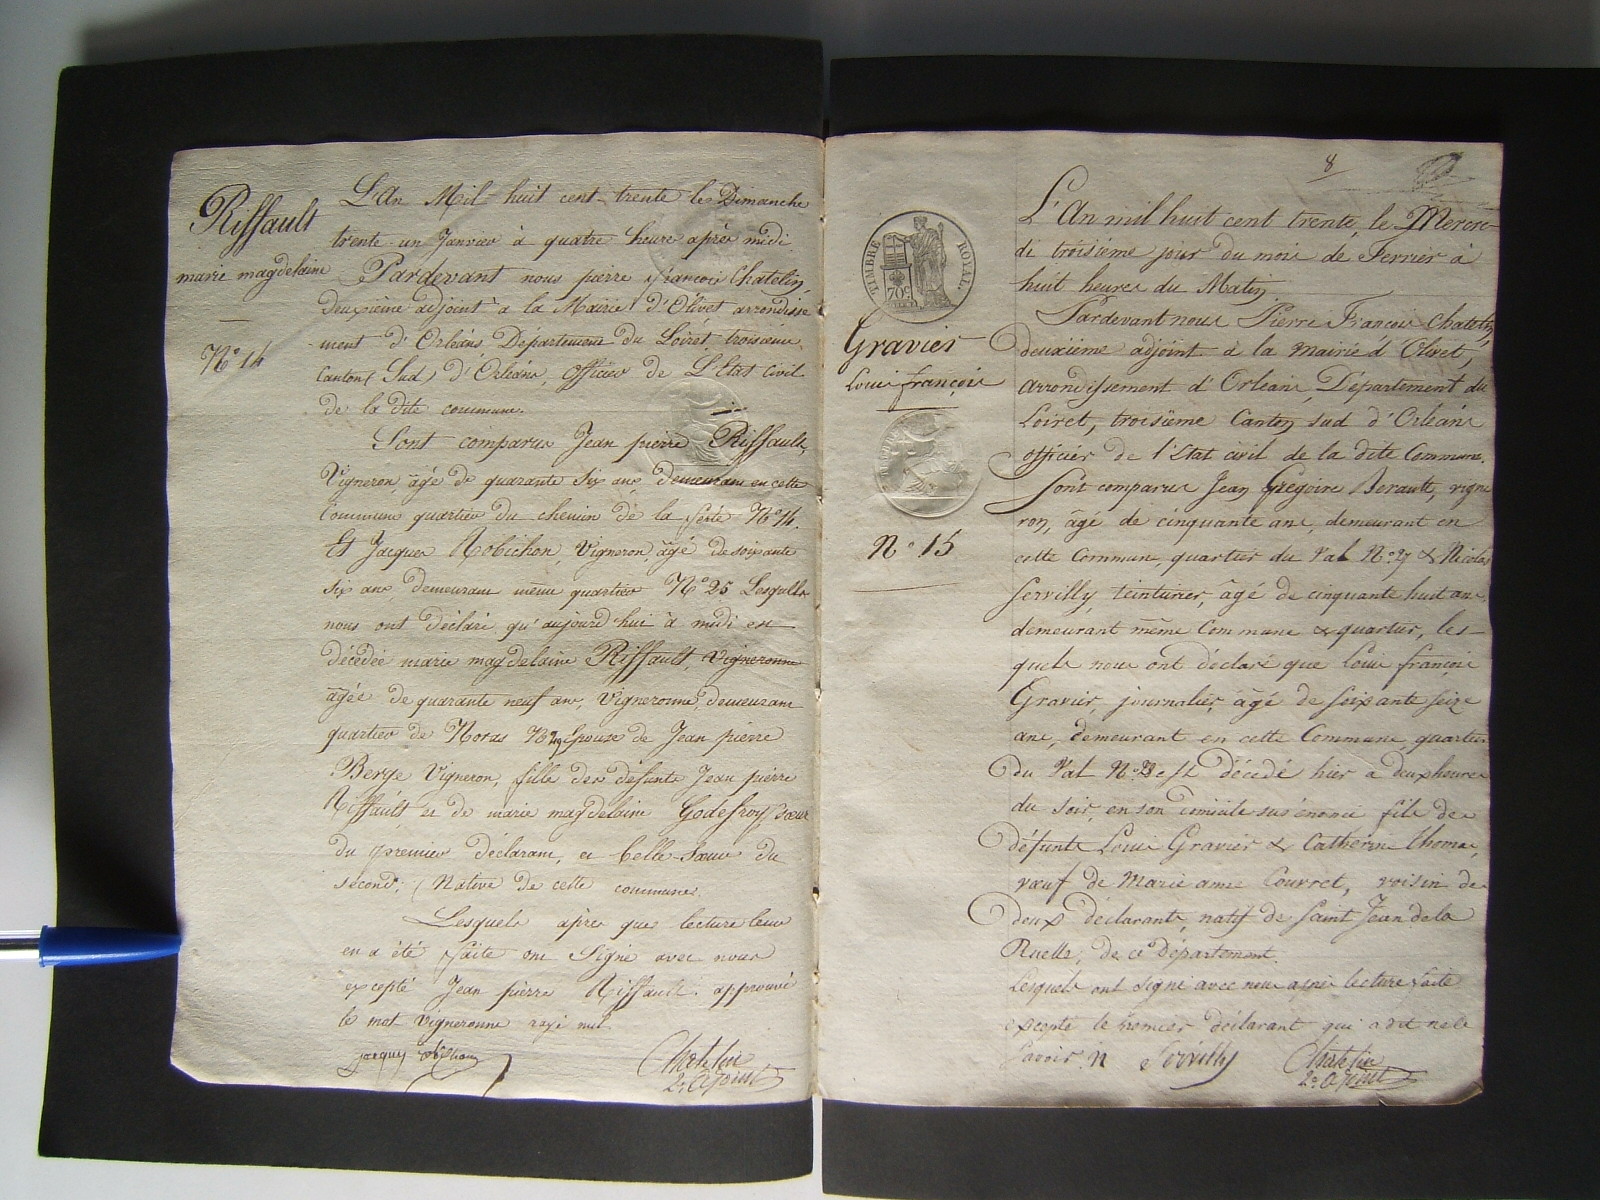 Riffault
marie magdelaine
N° 14
L'An Mil huit cent trente le Dimanche
trente-un Janvier à quatre heure après midi
Pardevant nous pierre françois Chatelin,
deuxième adjoint à la Mairie d'Olivet arrondisse
-ment d'Orléans Département du Loiret, troisième
Canton (Sud) d'Orléans, officier de L'Etat Civil
de la dite commune.
Sont comparus Jean pierre Riffault,
Vigneron, âgé de quarante six ans, demeurant en cette
Commune quartier du chemin de la ferté N° 14.
Et Jacques Robichon, Vigneron, âgé de soixante
six ans, demeurant même quartier N° 25 Lesquels
nous ont déclaré qu'aujourd'hui à midi est
décédée marie magdelaine Riffault, Vigneronne
âgée de quarante neuf ans, Vigneronne, demeurant
quartier de Noras N° Epouse de Jean pierre
Berge Vigneron, fille des défunts Jean pierre
Riffault, et de marie magdelaine Godefroy, Soeur
du premier déclarant, et belle-Soeur du
second. (Native de cette commune.
Lesquels après que lecture leur
en a été faite ont Signé avec nous
excepté Jean pierre Riffault. approuvé
le mot Vigneronne rayé nul
jacques robichon
Chatelin
2e adjoint
8
TIMBRE ROYAL
70c
Gravier
Louis françois
N° 15
L'An mil huit cent trente, le Mercre-
di troisième jour du mois de Fevrier à
huit heures du Matin,
Pardevant nous Pierre François Chatelin,
deuxième adjoint à la Mairie d'Olivet,
arrondissement d'Orleans, Département du
Loiret, troisième Canton sud d'Orléans
officier de l'Etat civil de la dite Commune.
Sont comparus Jean Gregoire Berault, vigne
ron, âgé de cinquante ans, demeurant en
cette Commune, quartier du Val N° & Nicolas
Servilly teinturier, âgé de cinquante huit ans,
demeurant même Commune & quartier, les-
quels nous ont déclaré que Louis françois
Gravier, journalier, âgé de soixante seize
ans, demeurant en cette Commune quartier
du Val N° est décédé hier à deux heures
du soir, en son domicile sus énoncé fils de
défunts Louis Gravier & Catherine Thomas,
veuf de Marie anne Courret, voisin des
deux déclarants, natif de Saint Jean de la
Ruelle, de ce département.
Lesquels ont signé avec nous après lecture faite
excepté le premier déclarant qui a dit ne le
Savoir. n Servilly
Chatelin
2e adjoint